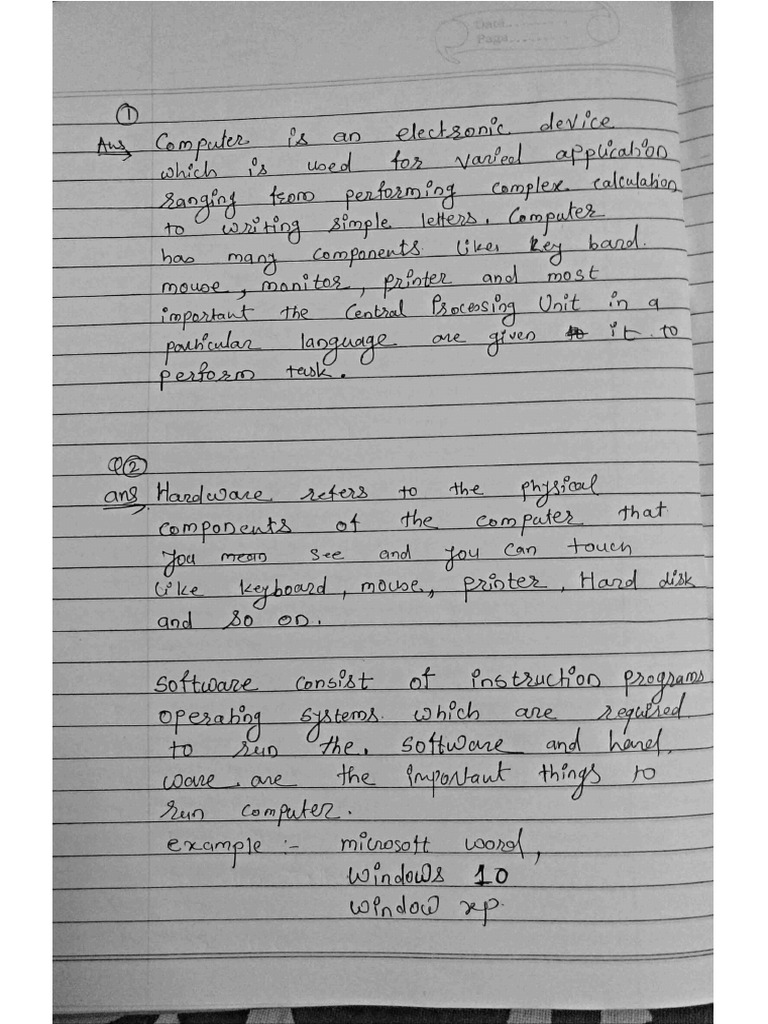 Date..........
Page..........
①
Ans Computer is an electronic device
which is used for varied application
ranging from performing complex calculation
to writing simple letters. Computer
has many components like, key bard.
mouse, monitor, printer and most
important the Central Processing Unit in a
particular language are given to it to
perform task.
Q②
ans Hardware refers to the physical
components of the computer that
you mean see and you can touch
like keyboard, mouse, printer, Hard disk
and so on.
software consist of instruction programs
operating systems which are required
to run the, software and hand,
ware are the important things to
run computer.
example :- microsoft word,
windows 10
window xp.